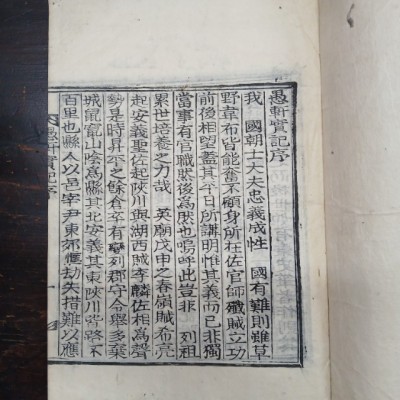 愚軒實記序
我 國朝士大夫忠義成性 國有難則雖草
野韋布皆能奮不顧身所在佐官師殲賊立功
前後相望盖其平日所講明惟其義而已非獨
當事有官職然後爲然也嗚呼此豈非 列祖
累世培養之力哉 英廟戊申之春嶺賊希亮
起安義聖佐起陜川與湖西賊李麟佐相爲聲
勢是時昇平之餘倉卒有變列郡守令擧多棄
城鼠竄山陰爲縣其北安義其東陜川皆路不
百里也縣人以邑宰尹東郊劫失措難以應
愚軒實記序 一